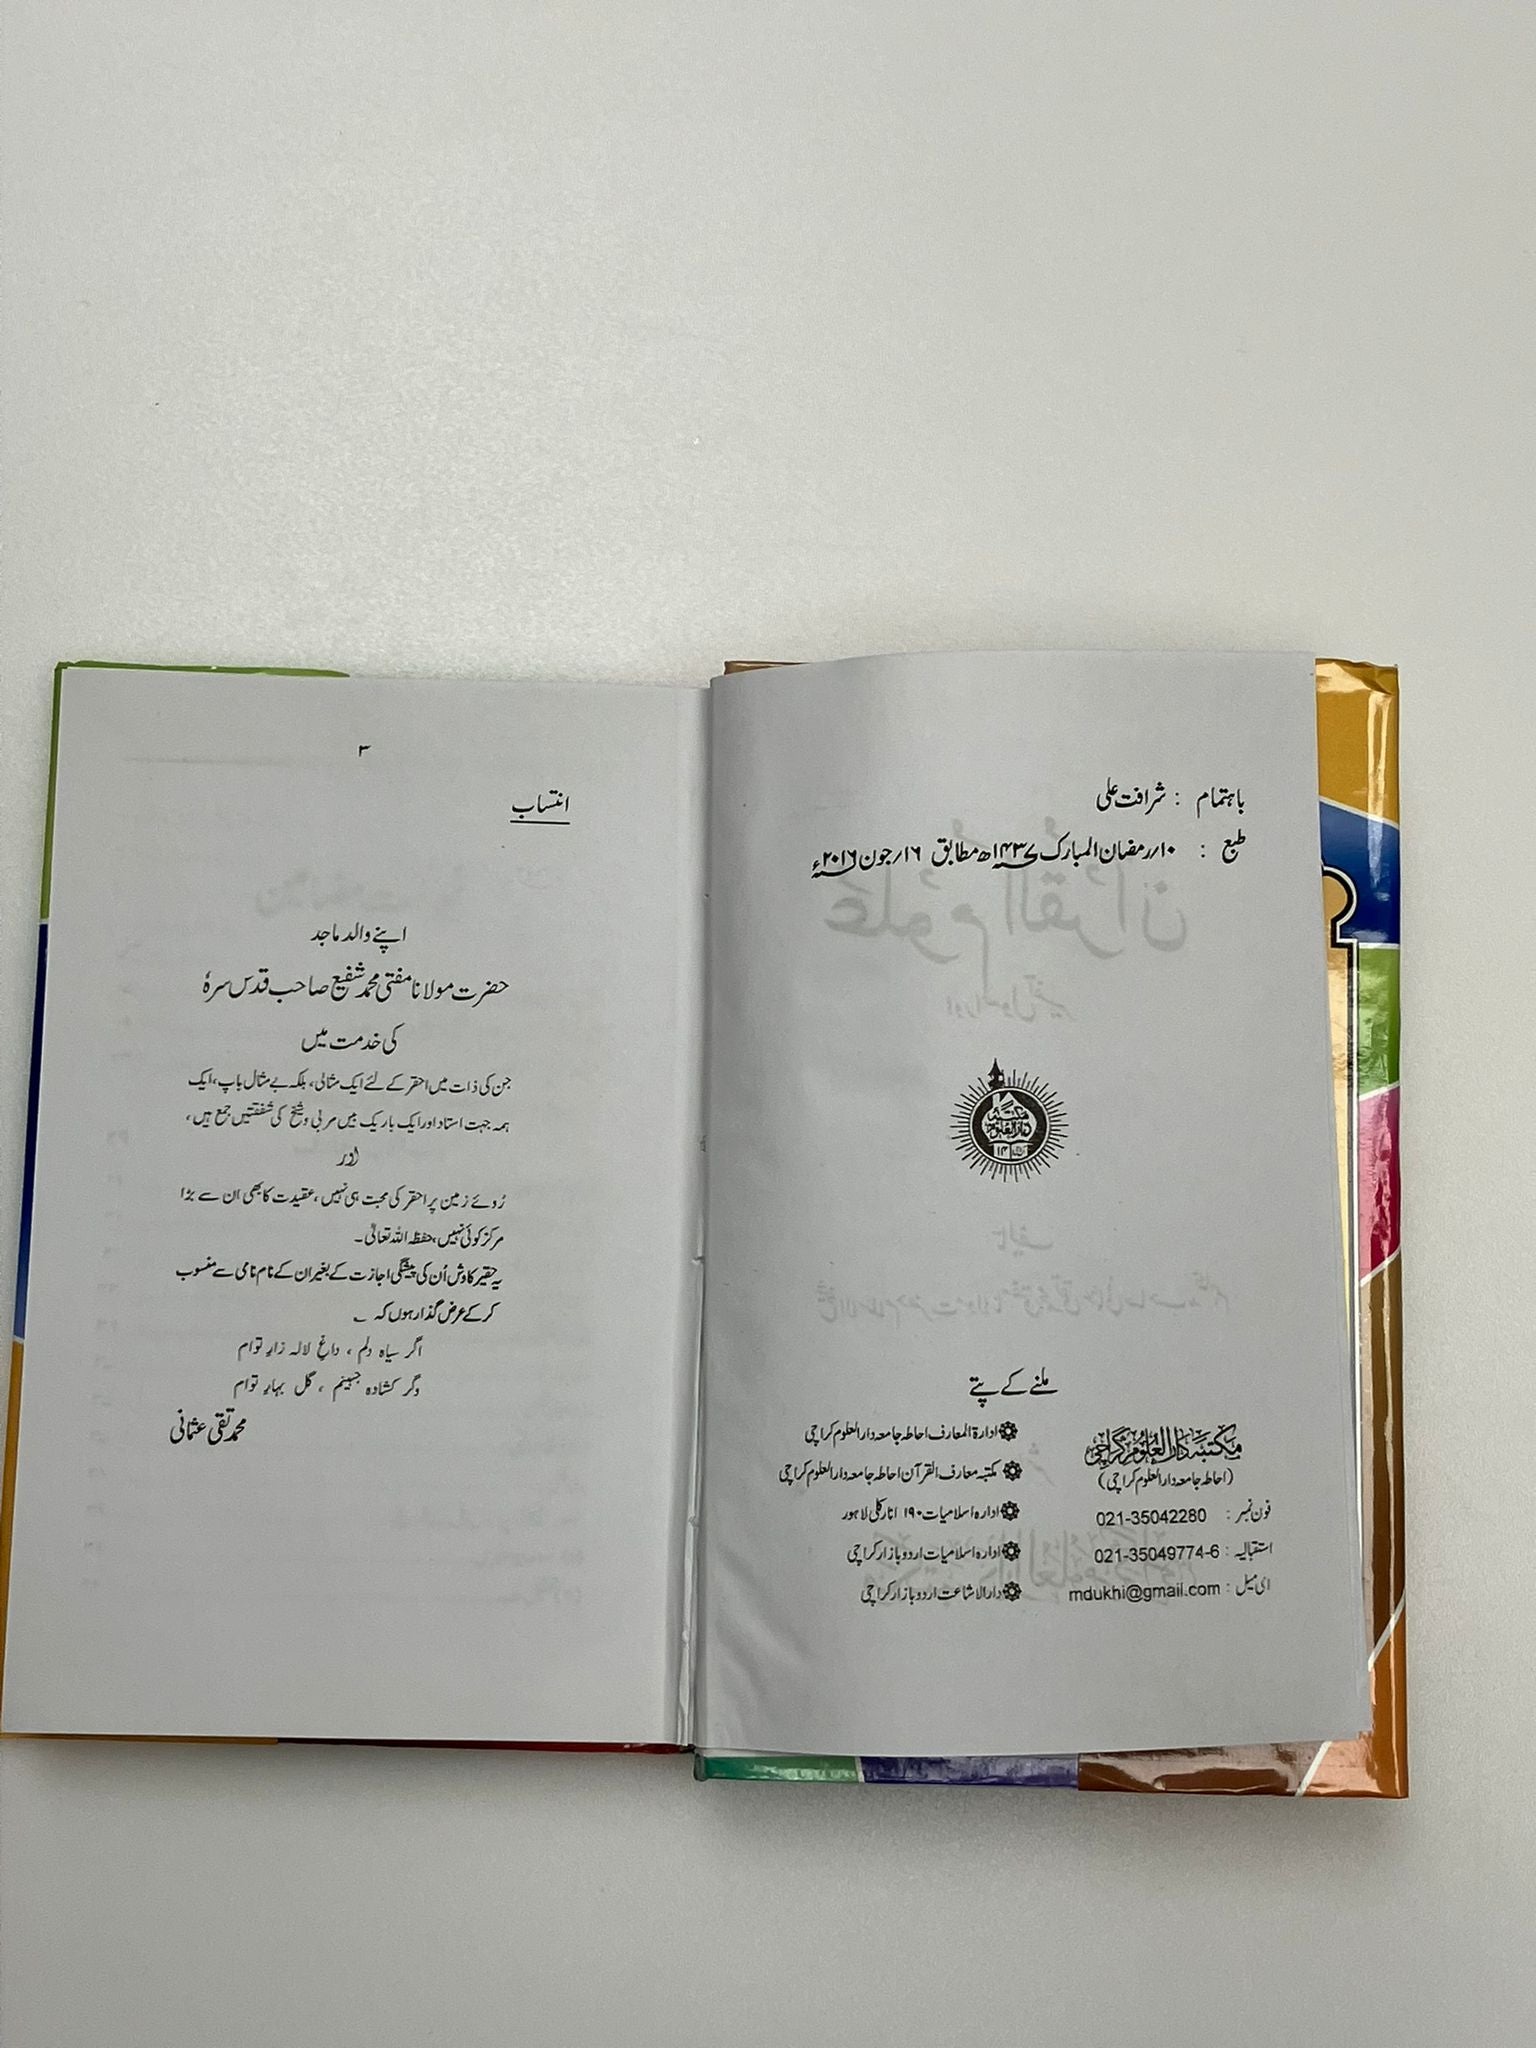 باہتمام : شرافت علی
طبع : ۱۰/رمضان المبارک ۱۴۳۷ھ مطابق ۱۶/جون ۲۰۱۶ء
مکتبہ
دارالعلوم
کراچی ۱۴
ملنے کے پتے
مکتبہ دارالعلوم کراچی
(احاطہ جامعہ دارالعلوم کراچی)
فون نمبر : 021-35042280
استقبالیہ : 021-35049774-6
ای میل : mdukhi@gmail.com
ادارۃ المعارف احاطہ جامعہ دارالعلوم کراچی
مکتبہ معارف القرآن احاطہ جامعہ دارالعلوم کراچی
ادارہ اسلامیات ۱۹۰ انارکلی لاہور
ادارہ اسلامیات اردو بازار کراچی
دارالاشاعت اردو بازار کراچی
۳
انتساب
اپنے والد ماجد
حضرت مولانا مفتی محمد شفیع صاحب قدس سرہٗ
کی خدمت میں
جن کی ذات میں احقر کے لئے ایک مثالی، بلکہ بے مثال باپ، ایک
ہمہ جہت استاد اور ایک باریک بیں مربی و شیخ کی شفقتیں جمع ہیں،
اور
رُوئے زمین پر احقر کی محبت ہی نہیں، عقیدت کا بھی ان سے بڑا
مرکز کوئی نہیں، حفظہ اللہ تعالیٰ۔
یہ حقیر کاوش اُن کی پیشگی اجازت کے بغیر ان کے نام نامی سے منسوب
کر کے عرض گذار ہوں کہ ؎
اگر سیاہ دلم ، داغِ لالہ زارِ توام
وگر کشادہ جبینم ، گل بہارِ توام
محمد تقی عثمانی